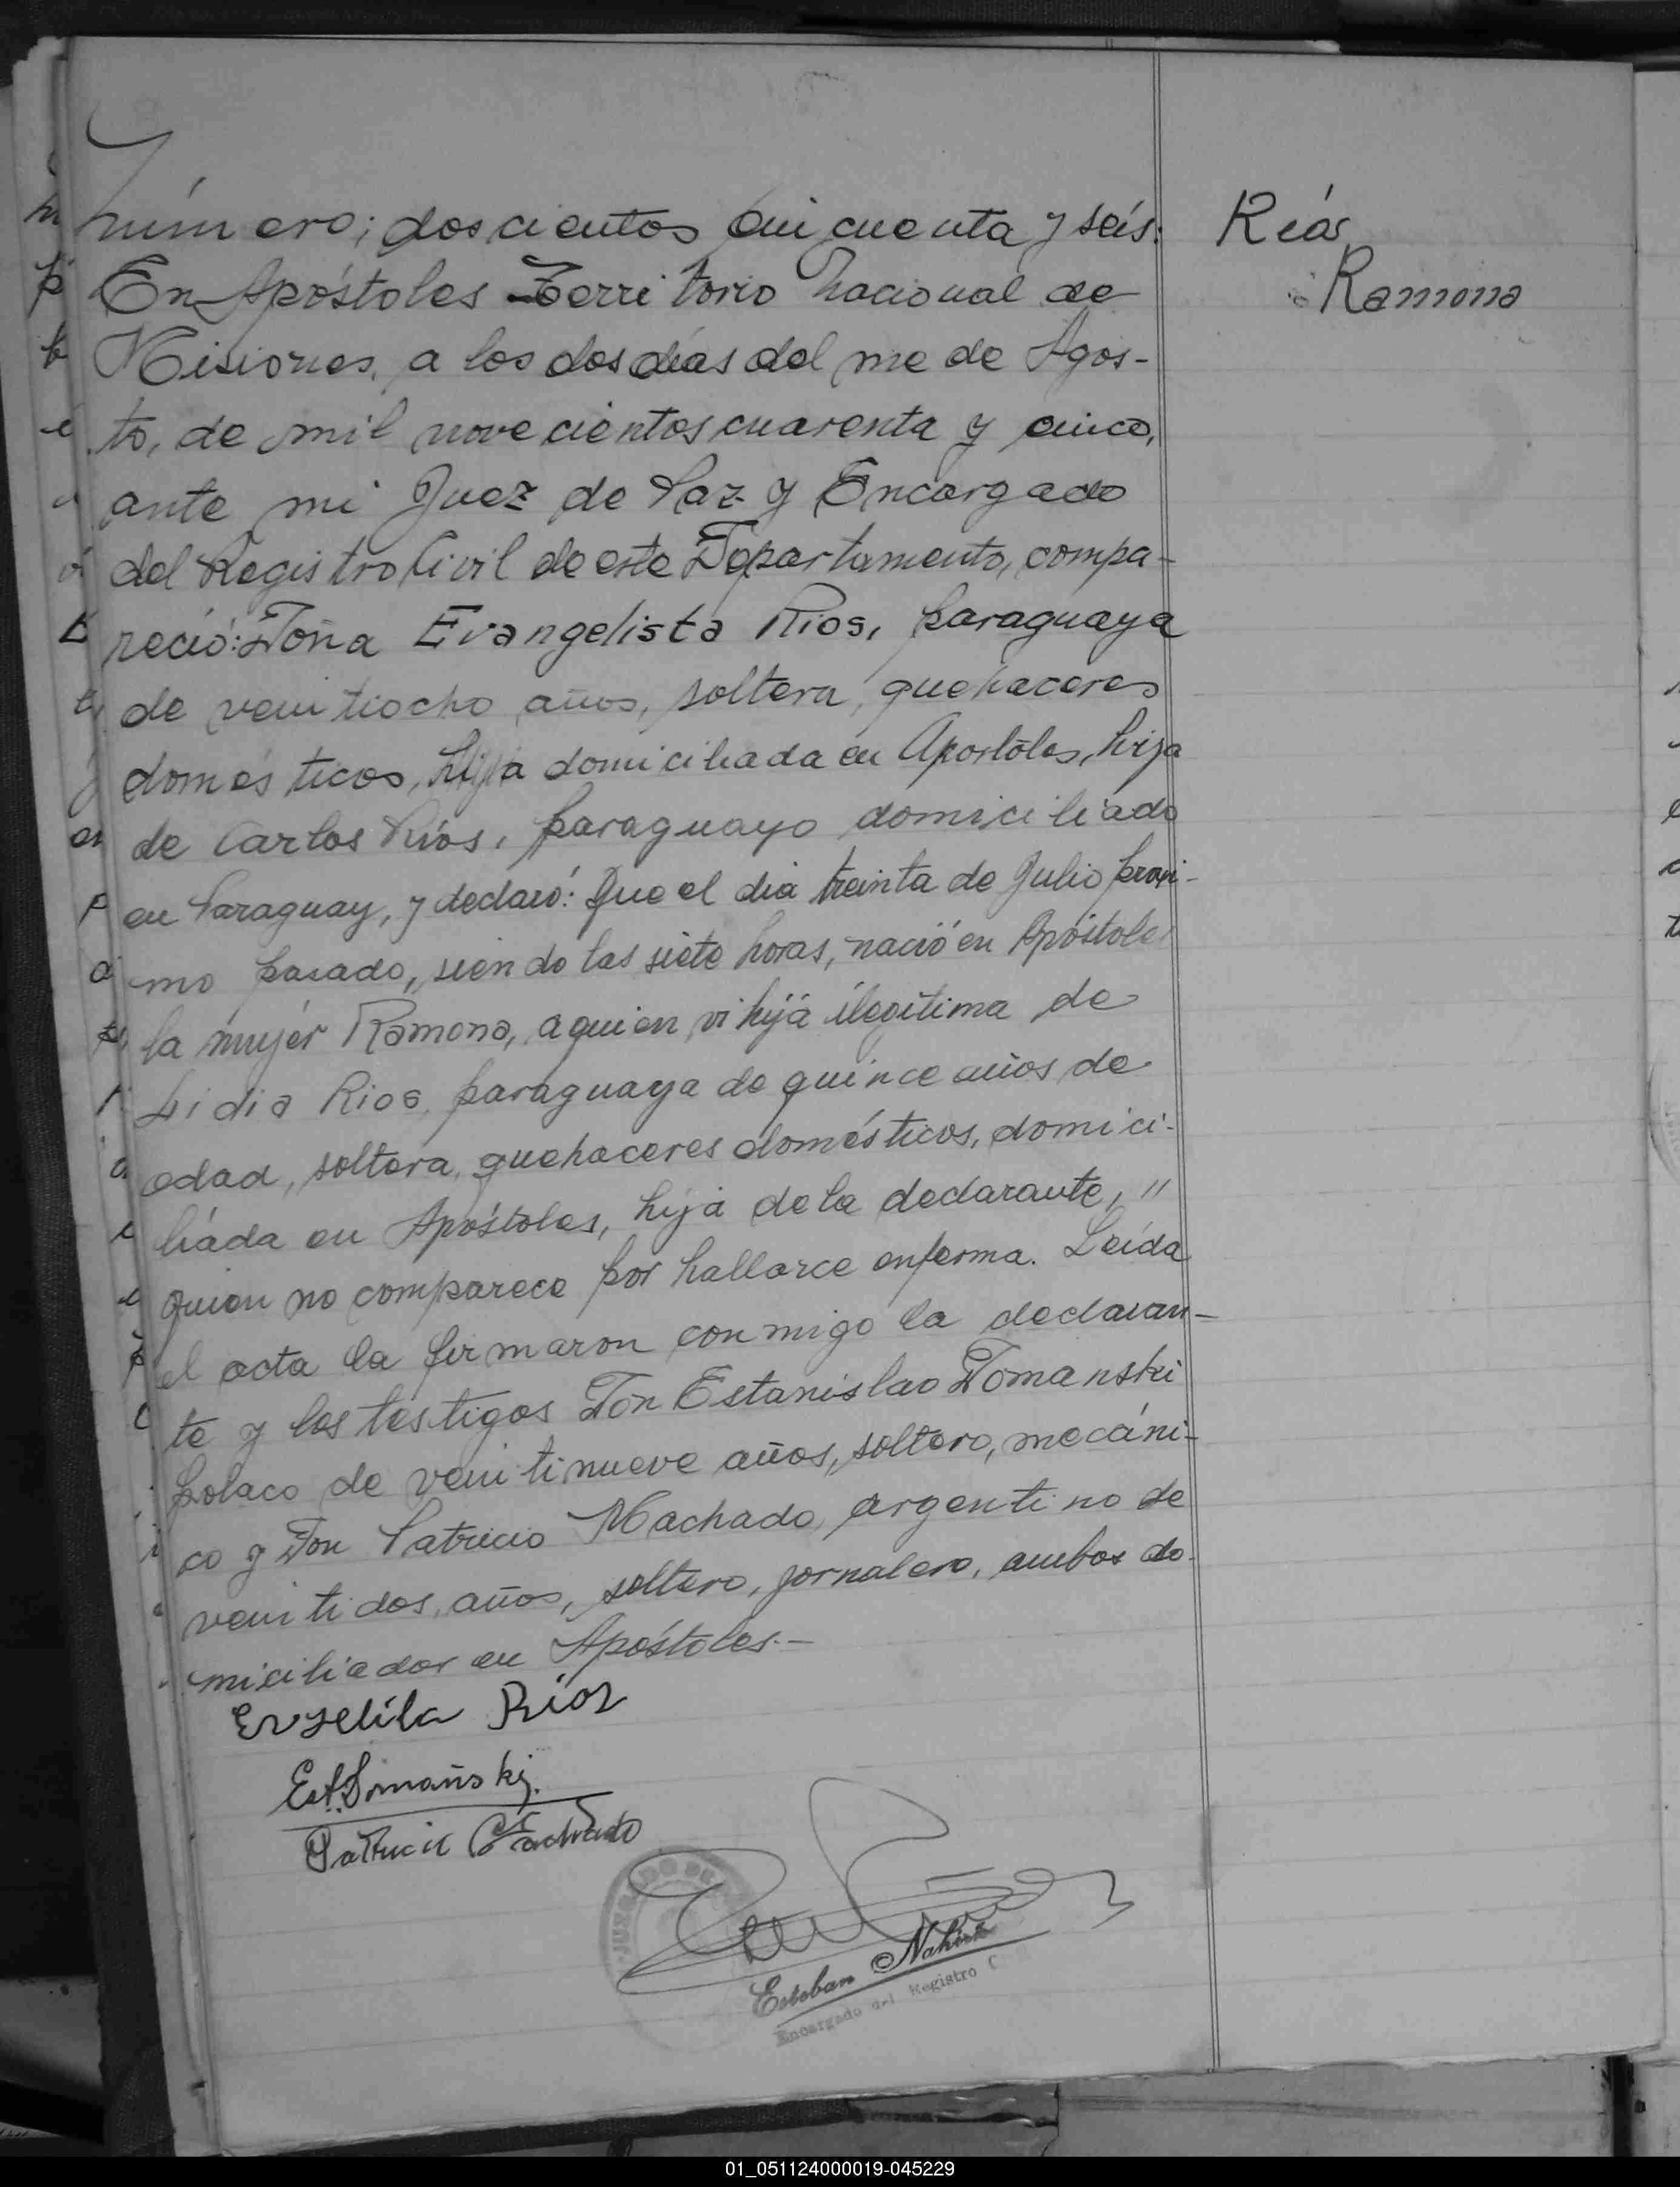 Número; doscientos cincuenta y seis:
Ríos
Ramona
En Apóstoles Territorio Nacional de
Misiones, a los dos días del me de Agos-
to, de mil novecientos cuarenta y cinco,
ante mi Juez de Paz y Encargado
del Registro Civil de este Departamento, compa-
reció: Doña Evangelista Rios, paraguaya
de veintiocho años, soltera, quehaceres
domésticos, hija domiciliada en Apostóles, hija
de Carlos Ríos, paraguayo domiciliado
en Paraguay, y declaró: Que el dia treinta de Julio proxi-
mo pasado, siendo las siete horas, nació en Apóstoles
la mujer Ramona, a quien vi hija ilegítima de
Lidia Rios, paraguaya de quince años de
edad, soltera, quehaceres domésticos, domici-
liada en Apóstoles, hija de la declarante, "
quien no comparece por hallarce enferma. Leída
el acta la firmaron conmigo la declaran-
te y los testigos Don Estanislao Domanski
polaco de veintinueve años, soltero, mecáni-
co y Don Patricio Machado, argentino de
veintidos, años, soltero, jornalero, ambos do-
miciliados en Apóstoles.-
Ríos
Patricio Machado
JUZGADO DE
Esteban
Encargado del Registro C
01_051124000019-045229